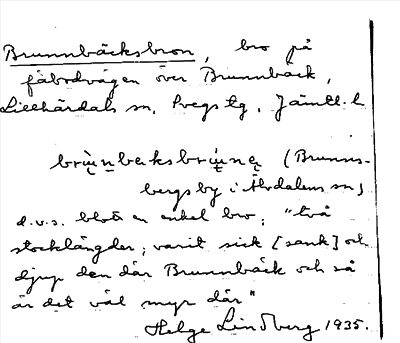 Brunnbäcksbron, bro på
fäbodvägen över Brunnbäck,
Lillhärdals sn, Svegs tg, Jämtl. l
(Brunns-
bergsby i Älvdalens sn)
d.v.s. blott en enkel bro; "två
stocklängder; varit sick [sank] och
djup den där Brunnbäck och så
är det väl myr där"
Helge Lindberg 1935.